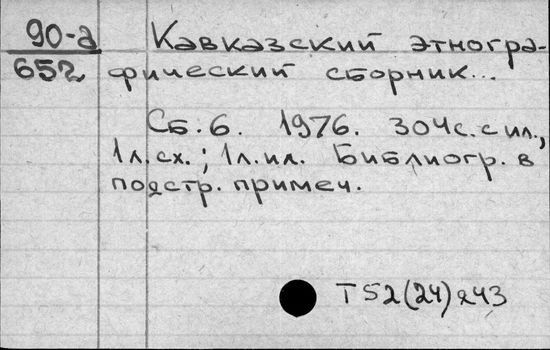 90-а Кавказский этногра-
652 фический сборник...
Сб. 6. 1976. 304с. с ил.,
1л.сх.; 1л.ил. Библиогр. в
подстр. примеч.
Т52(24)я43